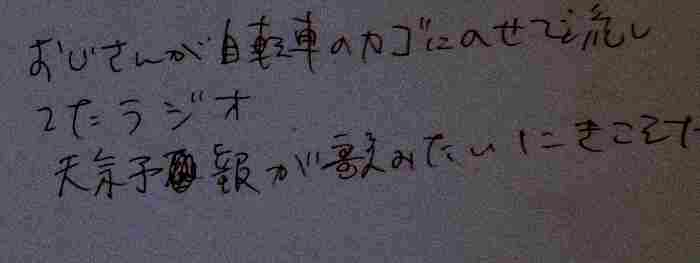 おじさんが自転車のカゴにのせて流し
てたラジオ
天気予報が歌みたいにきこえた